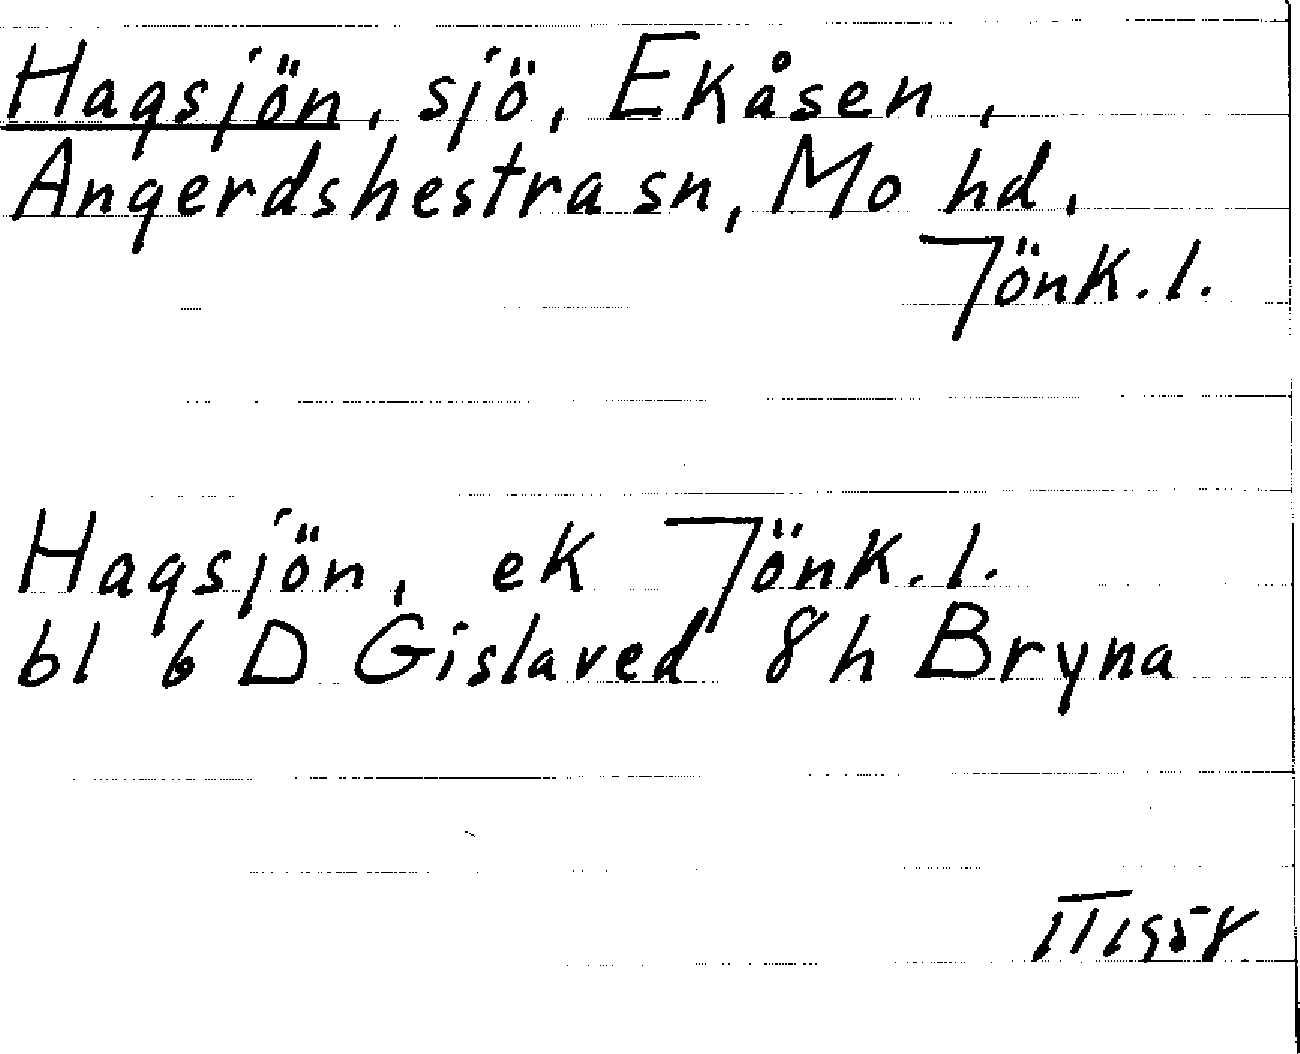 Hagsjön, sjö, Ekåsen,
Angerdshestra sn, Mo hd,
Jönk. l.
Hagsjön, ek Jönk. l.
bl 6 D Gislaved 8 h Bryna
II 1958